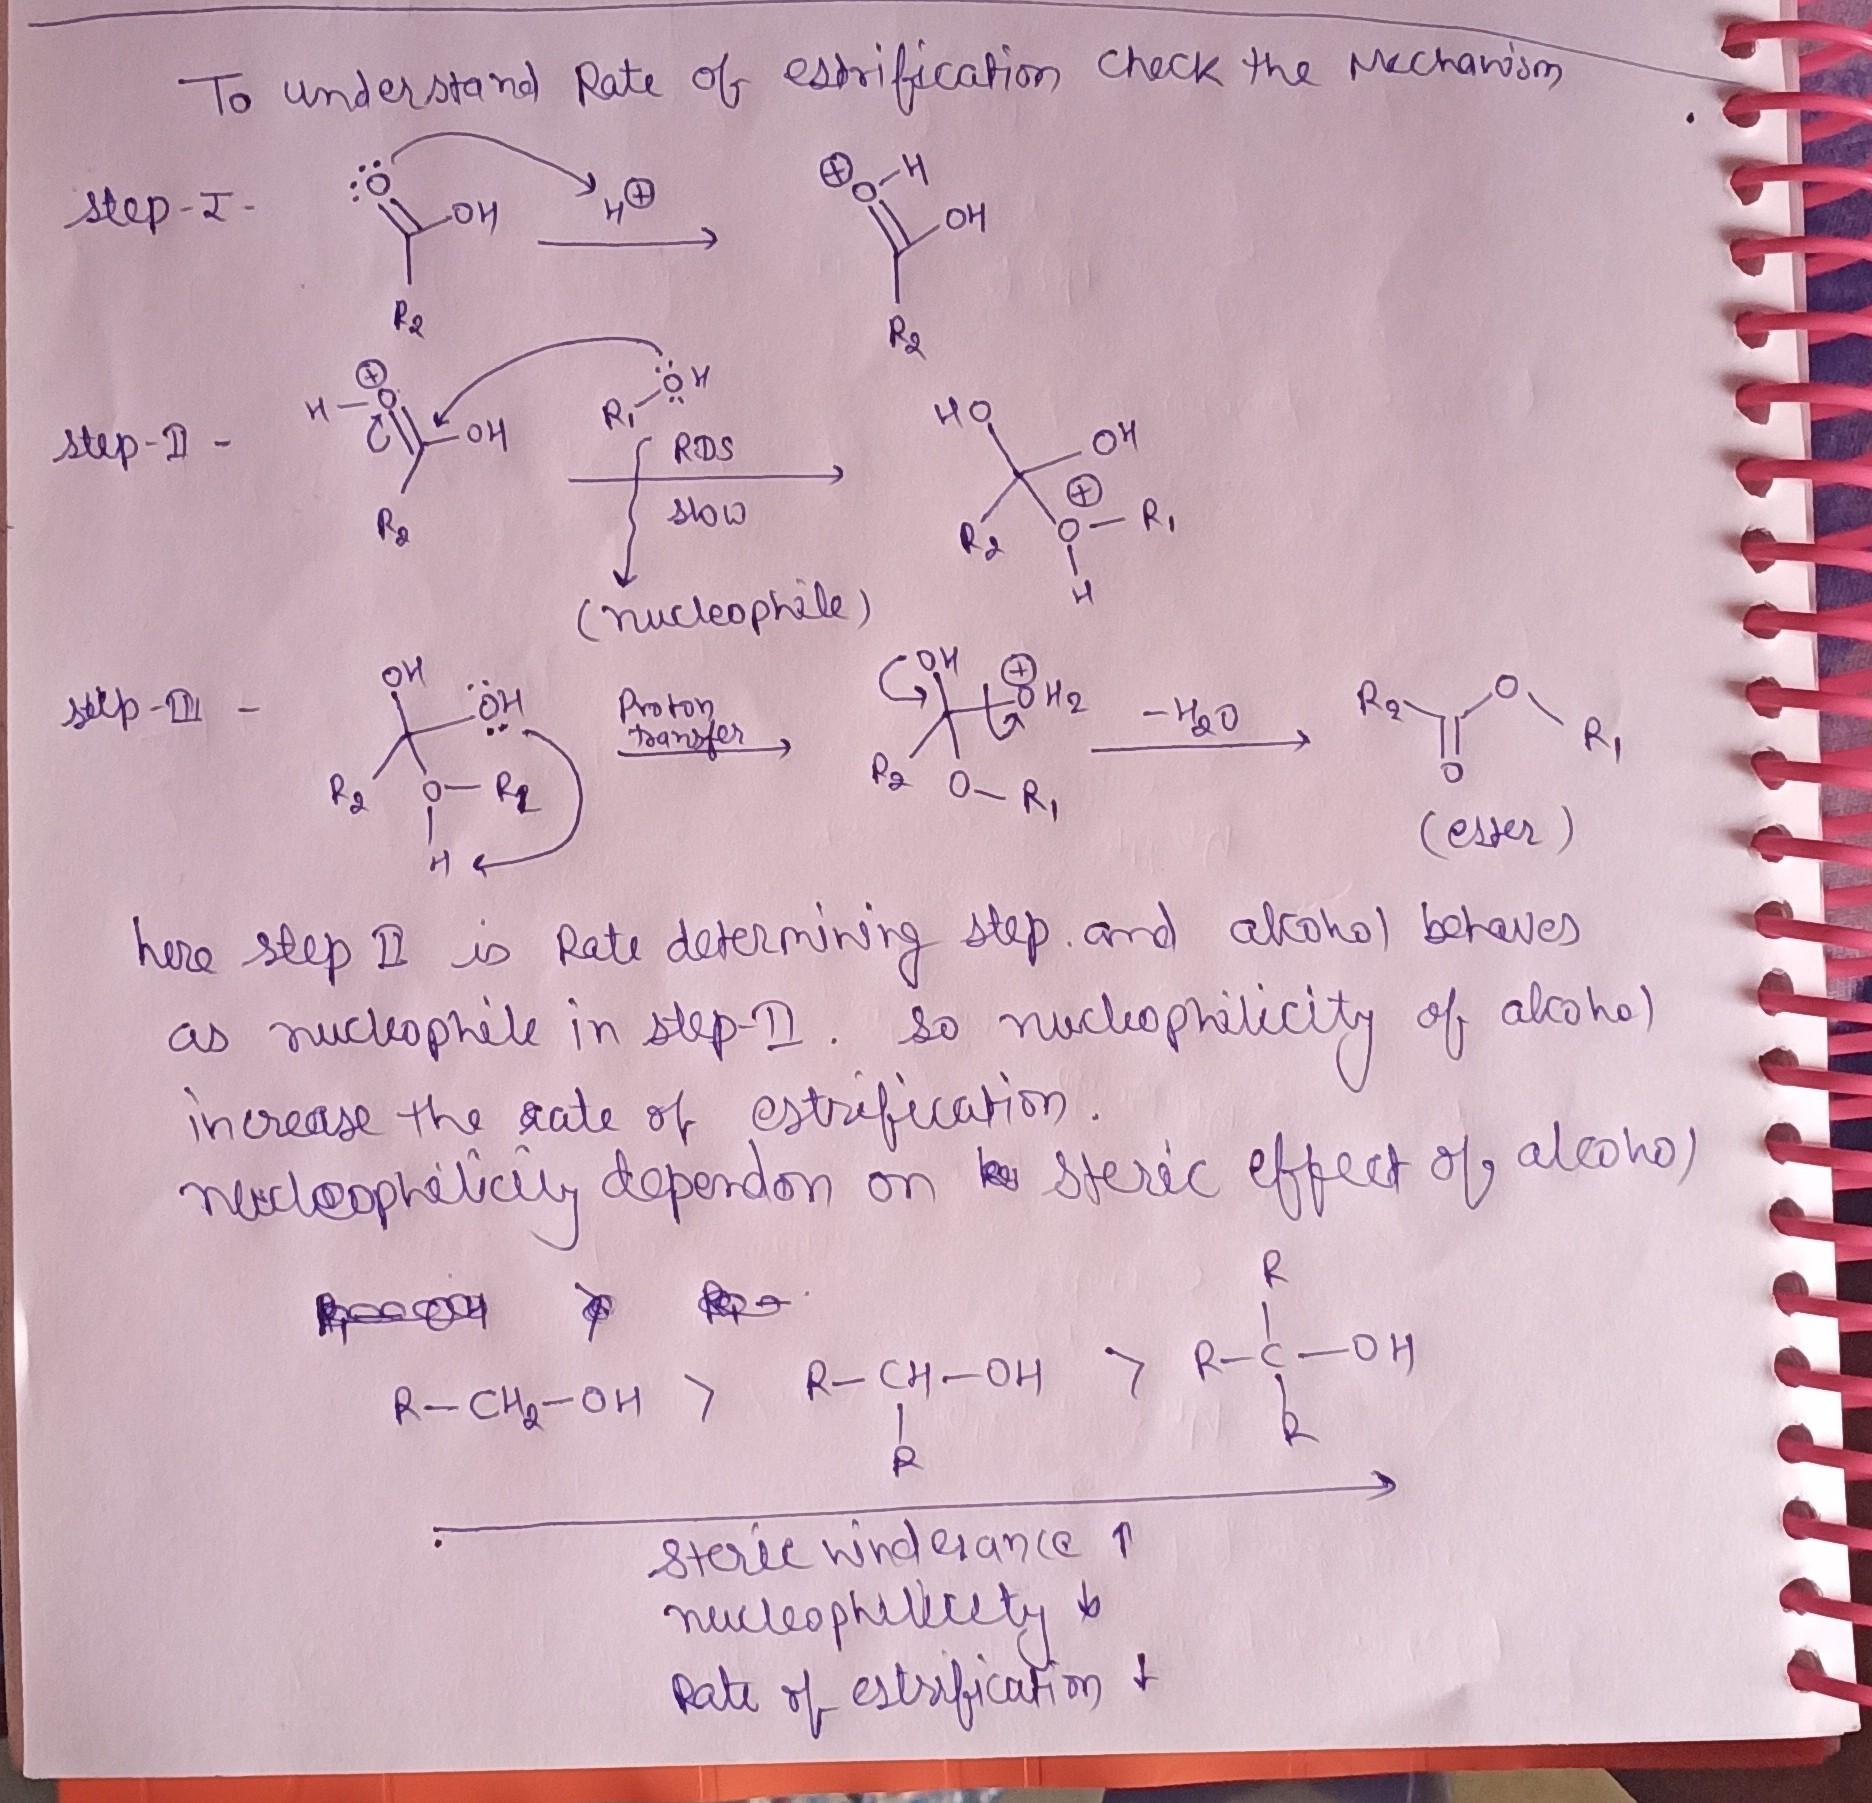 To understand Rate of estrification check the Mechanism
step-I-
:Ö OH H⊕ ⊕O-H OH
R2 R2
step-II - H-O⊕ OH R1 ÖH RDS slow HO OH ⊕
R2 R2 O-R1
H
(nucleophile)
step-III - OH ÖH Proton transfer OH ⊕OH2 -H2O R2 O R1
R2 O-R1 R2 O-R1 O
H (ester)
here step II is Rate determining step. and alcohol behaves
as nucleophile in step-II. so nucleophilicity of alcohol
increase the rate of estrification.
nucleophilicity dependon on steric effect of alcohol
R
R-CH2-OH > R-CH-OH > R-C-OH
R R
steric hinderance ↑
nucleophilicity ↓
Rate of estrification ↓